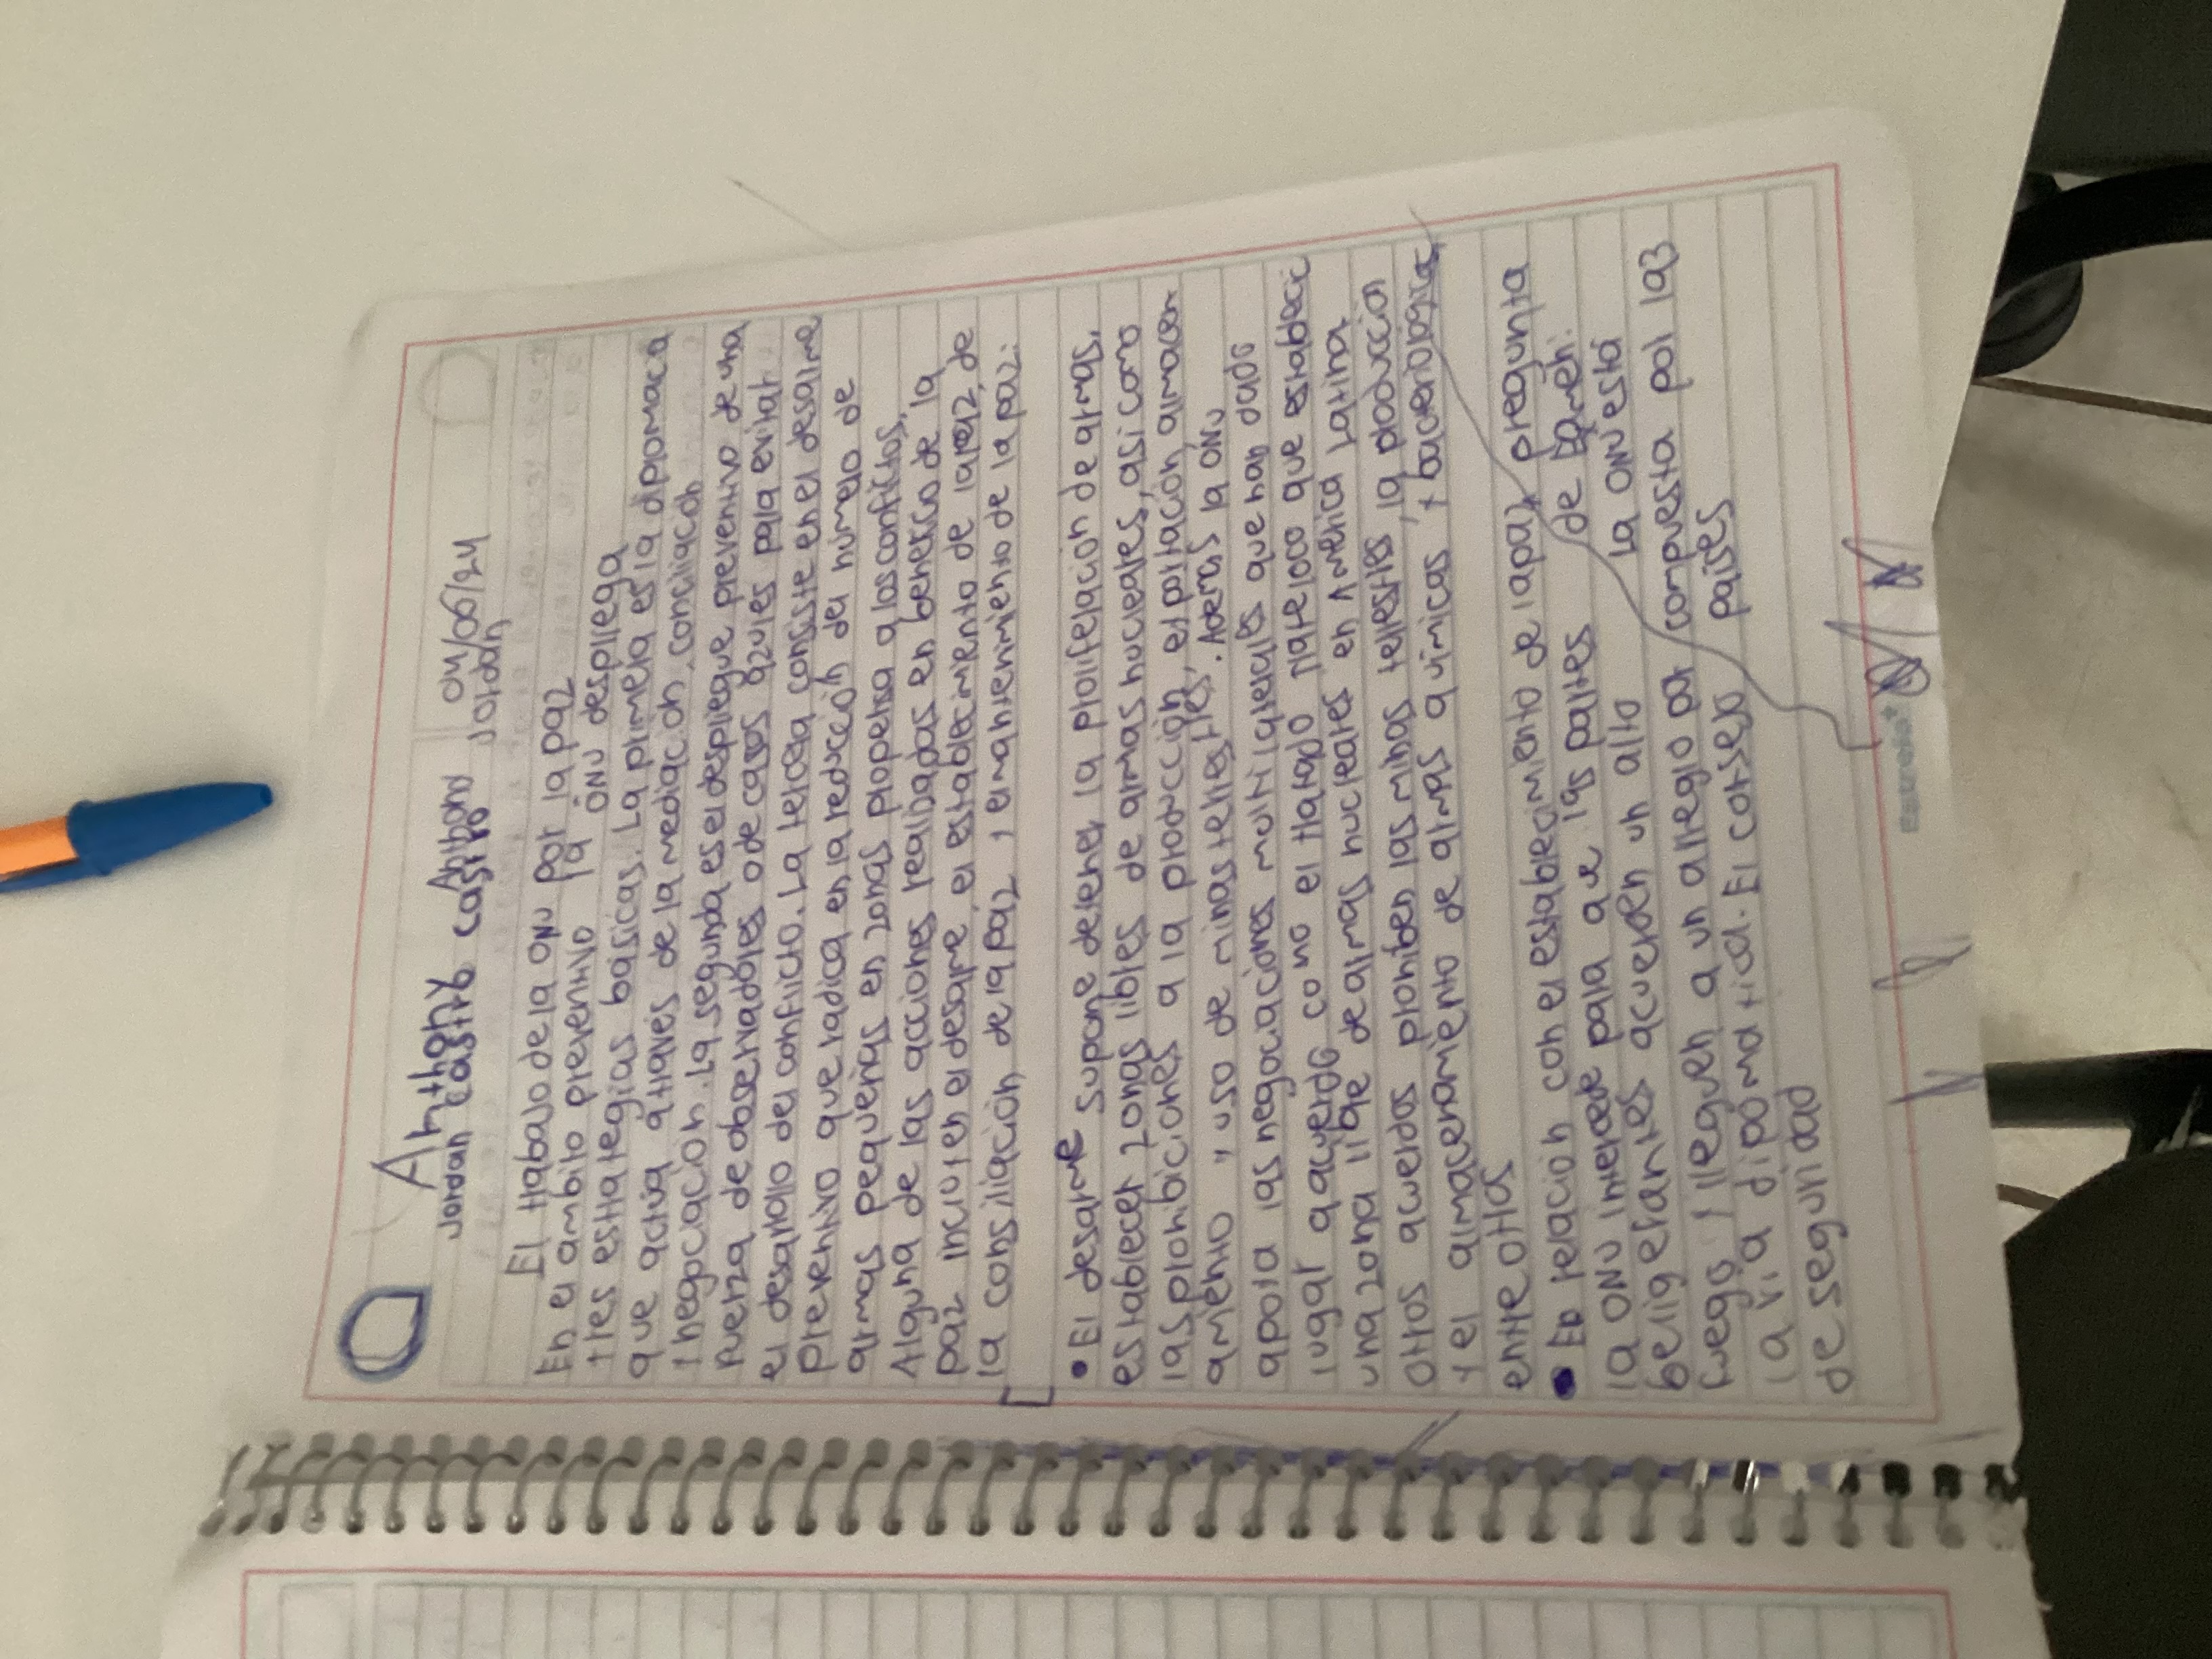 Anthony Anthony 04/06/24
Jordan castro castro Jordan
El trabajo de la ONU por la paz
En el ambito preventivo la ONU despliega
tres estrategias basicas. La primera es la dipromaca
que actua atraves de la mediacion, conciliacion
y negociacion. La segunda es el despliegue preventivo de una
fuerza de observadores o de casos azules para evitar
el desarrollo del conflicto. La tercera consiste en el desarme
preventivo que radica en la reducción del numero de
armas pequeñas en zonas propensa a los conflictos,
Alguna de las acciones realizadas en benersco de la
paz incluyen el desarme, el establecimiento de la paz, de
la consiliación de la paz y el mantenimiento de la paz:
• El desarme supone detener la proliferacion de armas,
establecer zonas libres de armas nucleares, asi como
las prohibiciones a la producción, exportación, almacen
amiento y uso de minas terrestres. Ademas la ONU
apoya las negociaciones multilaterales que han dado
lugar a acuerdo como el tratado Tlateloco que establecí
una zona libre de armas nucleares en America Latina
Otros acuerdos prohiben las minas terrestres, la produccion
y el almacenamiento de armas quimicas y bacteriologicas,
entre otras
• En relacion con el establecimiento de la paz, pregunta
la ONU intercede para que las partes de Examen:
beligerantes acuerden un alto la ONU está
fuego y lleguen a un arreglo por compuesta por 193
la via dipomatica. El consejo paises
de seguridad
Estrella